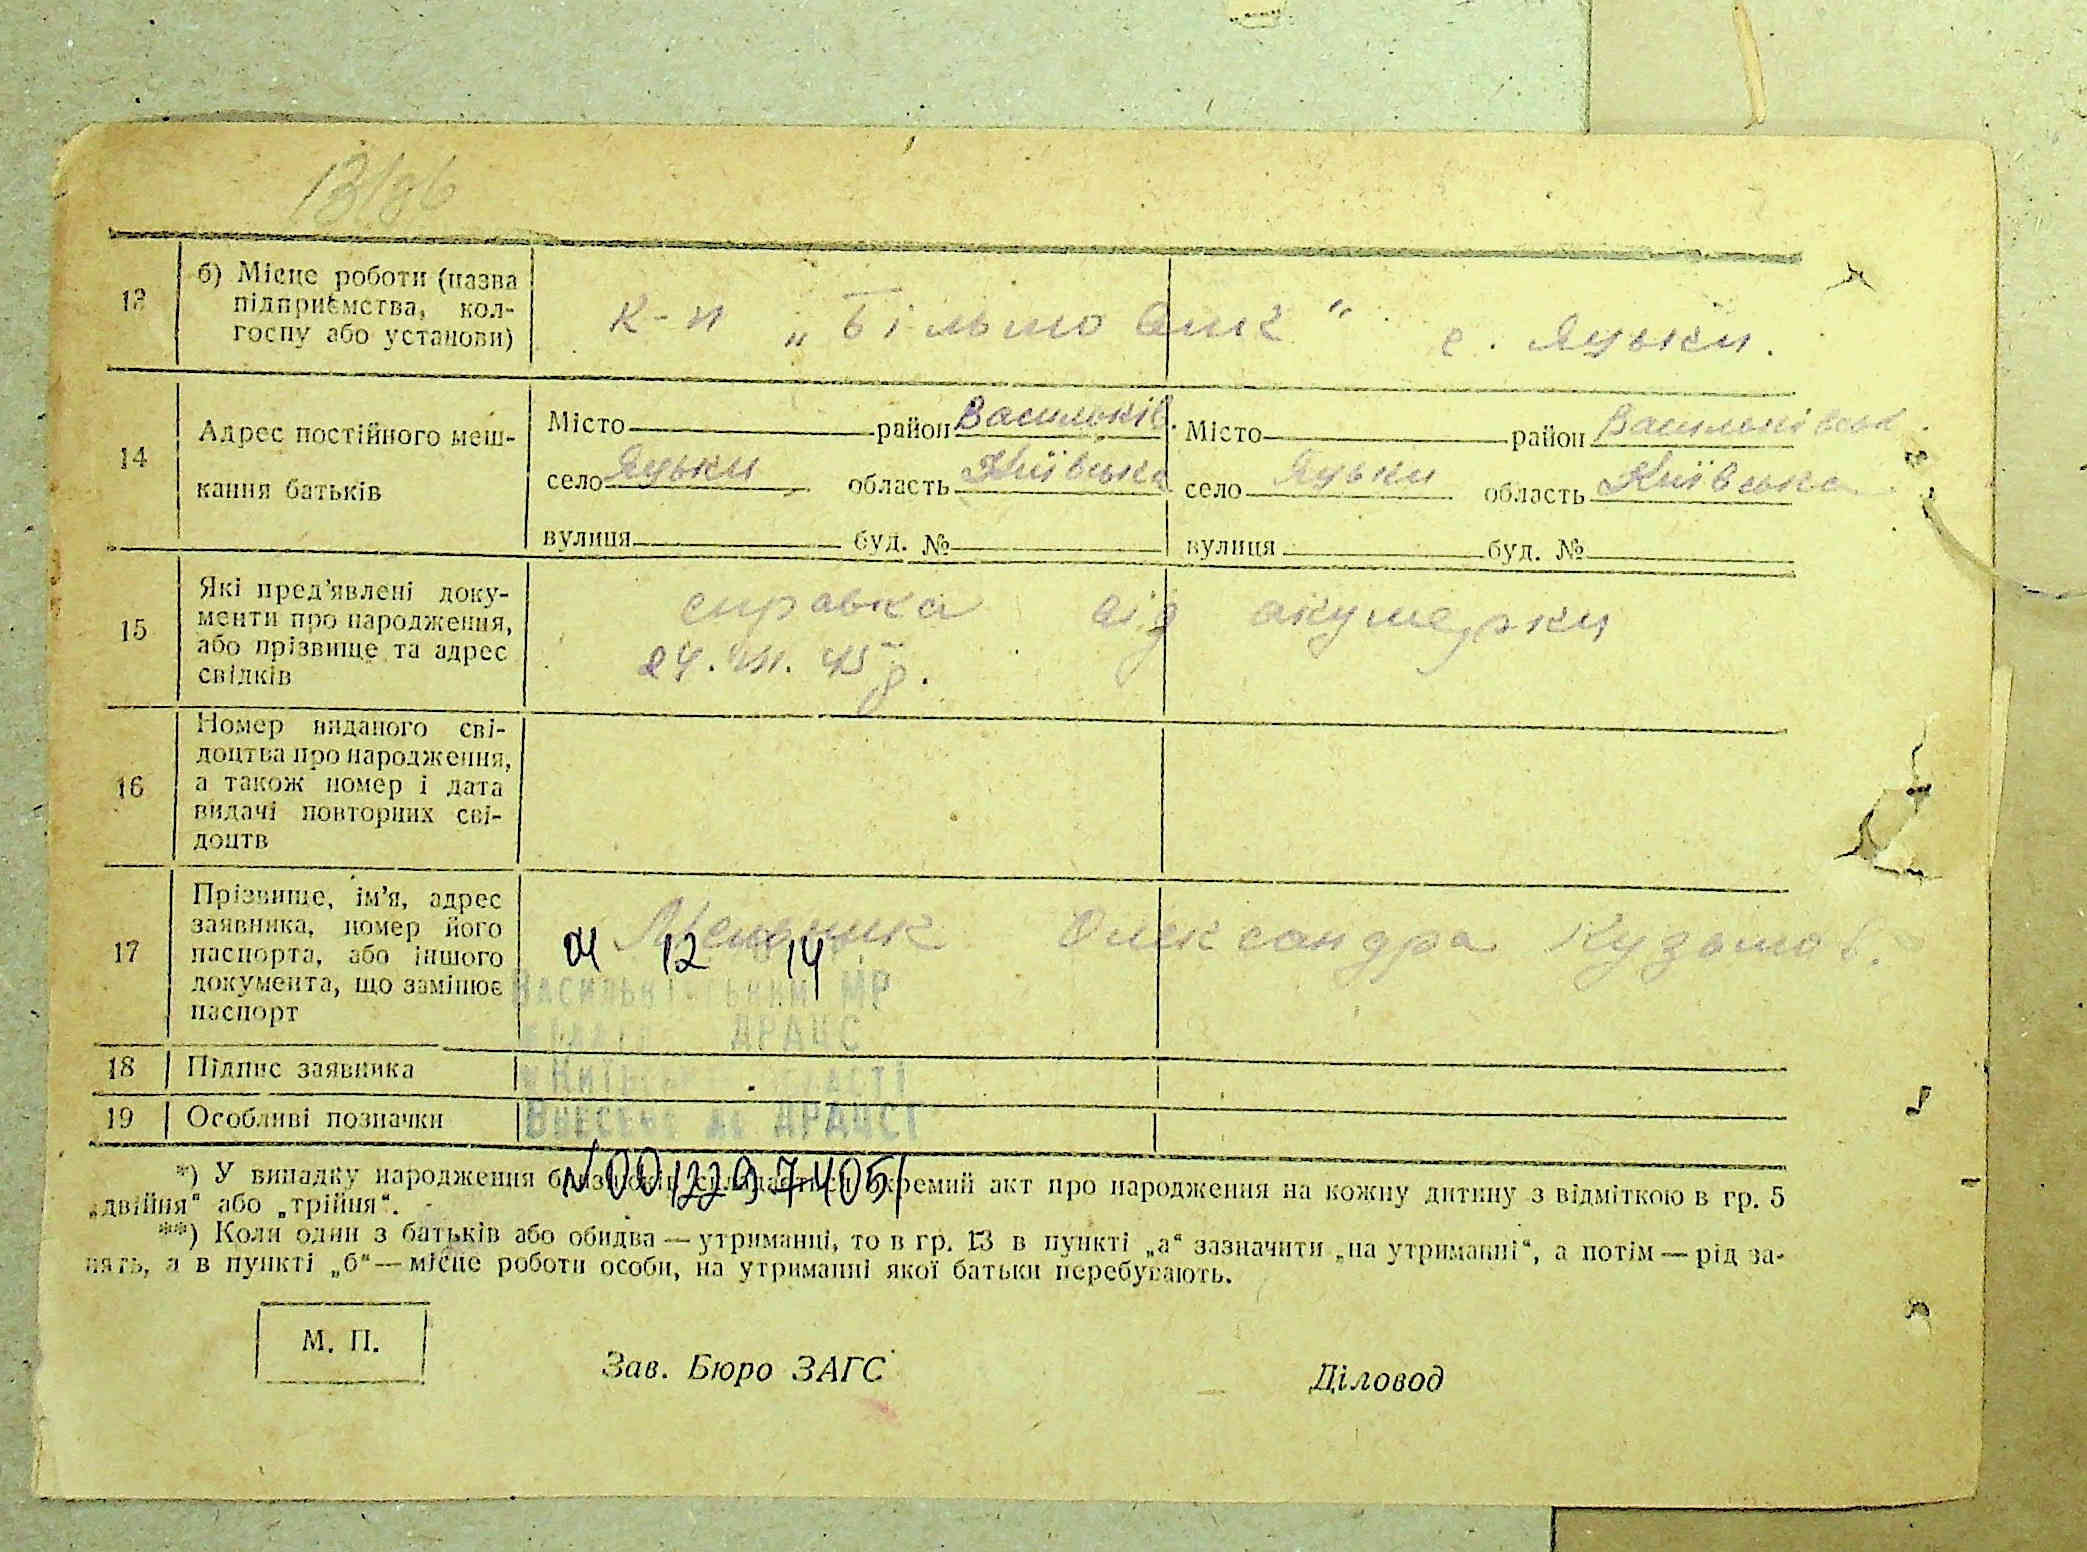 13 б) Місце роботи (назва
підприємства, кол-
госпу або установи)
к-п „Більшовик" с. Яцьки.
14 Адрес постійного меш-
кання батьків
Місто район Васильків. Місто район Васильківськ.
село Яцьки область Київська село Яцьки область Київська
вулиця буд. № вулиця буд. №
15 Які пред'явлені доку-
менти про народження,
або прізвище та адрес
свідків
справка від акушерки
24. 45 р.
16 Номер виданого сві-
доцтва про народження,
а також номер і дата
видачі повторних сві-
доцтв
17 Прізвище, ім'я, адрес
заявника, номер його
паспорта, або іншого
документа, що замінює
паспорт
Олександра Кузьмов.
12 14
МР
ДРАЦС
18 Підпис заявника
19 Особливі позначки
Внесено до ДРАЦСГ
№ 00122974051
*) У випадку народження окремий акт про народження на кожну дитину з відміткою в гр. 5
„двійня" або „трійня".
**) Коли один з батьків або обидва — утриманці, то в гр. 13 в пункті „а" зазначити „на утриманні", а потім — рід за-
нять, а в пункті „б" — місце роботи особи, на утриманні якої батьки перебувають.
М. П.
Зав. Бюро ЗАГС Діловод